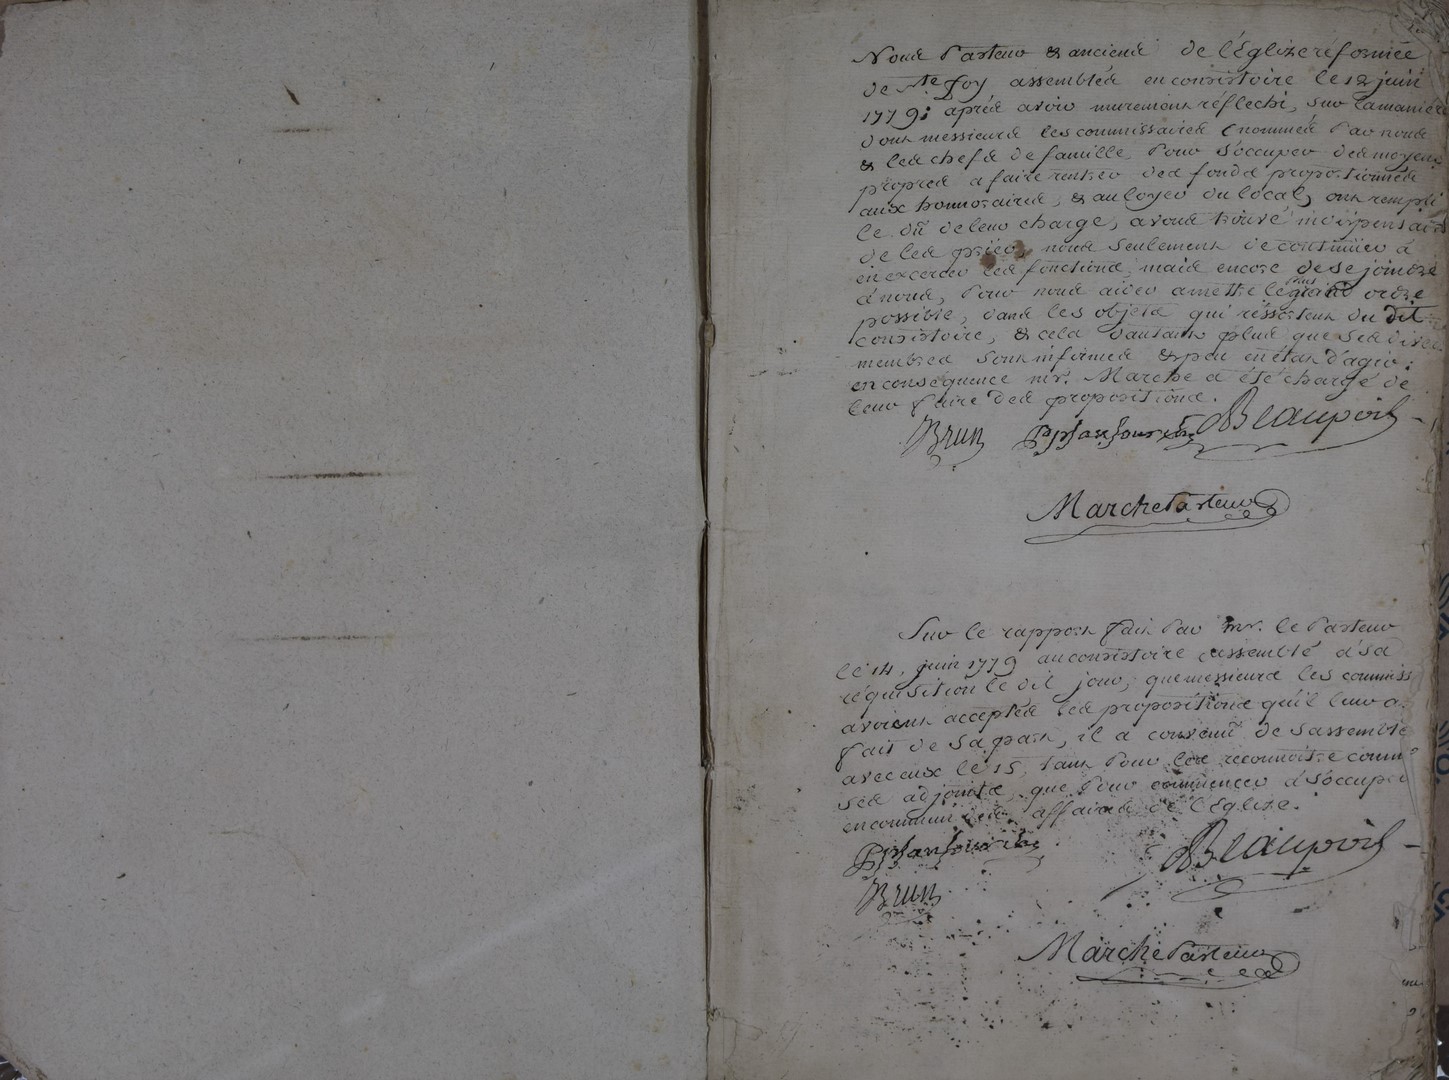 Nous Pasteur & anciens de l'Eglize réformée
de Ste Foy assemblés en consistoire le 12 juin
1779: aprés avoir murement réflechi, sur la maniére
dont messieurs les commissaires nommés Par nous
& les chefs de famille Pour s'occuper des moyens
propres a faire rentrer des fonds proportionnés
aux honnoraires, & au loyer du local, ont rempli
le dû de leur charge, avons trouvé
de les prier, nous seulement de continuer à
en exercer les fonctions, mais encore de se joindre
à nous, Pour nous aider a mettre le plus grand ordre
possible, dans les objets qui réssortent du dit
consistoire, & cela dautant plus que ses
membres sont infirmes & peu en état d'agir:
en conséquence mr. Marche a été chargé de
leur faire des propositions.
Brun Beaupoil
Marche Pasteur
Sur le rapport fait Par mr. le Pasteur
le 14, juin 1779 au consistoire assemblé à sa
réquisition le dit jour, que messieurs les commiss
avoient acceptés les propositions qu'il leur a
fait de sa part, il a convenu de sassemblé
avec eux le 15, tant Pour les reconnoitre comm
ses adjoints, que Pour commencer à s'occuper
en commun des affaires de l'Eglize.
Beaupoil
Brun
Marche Pasteur